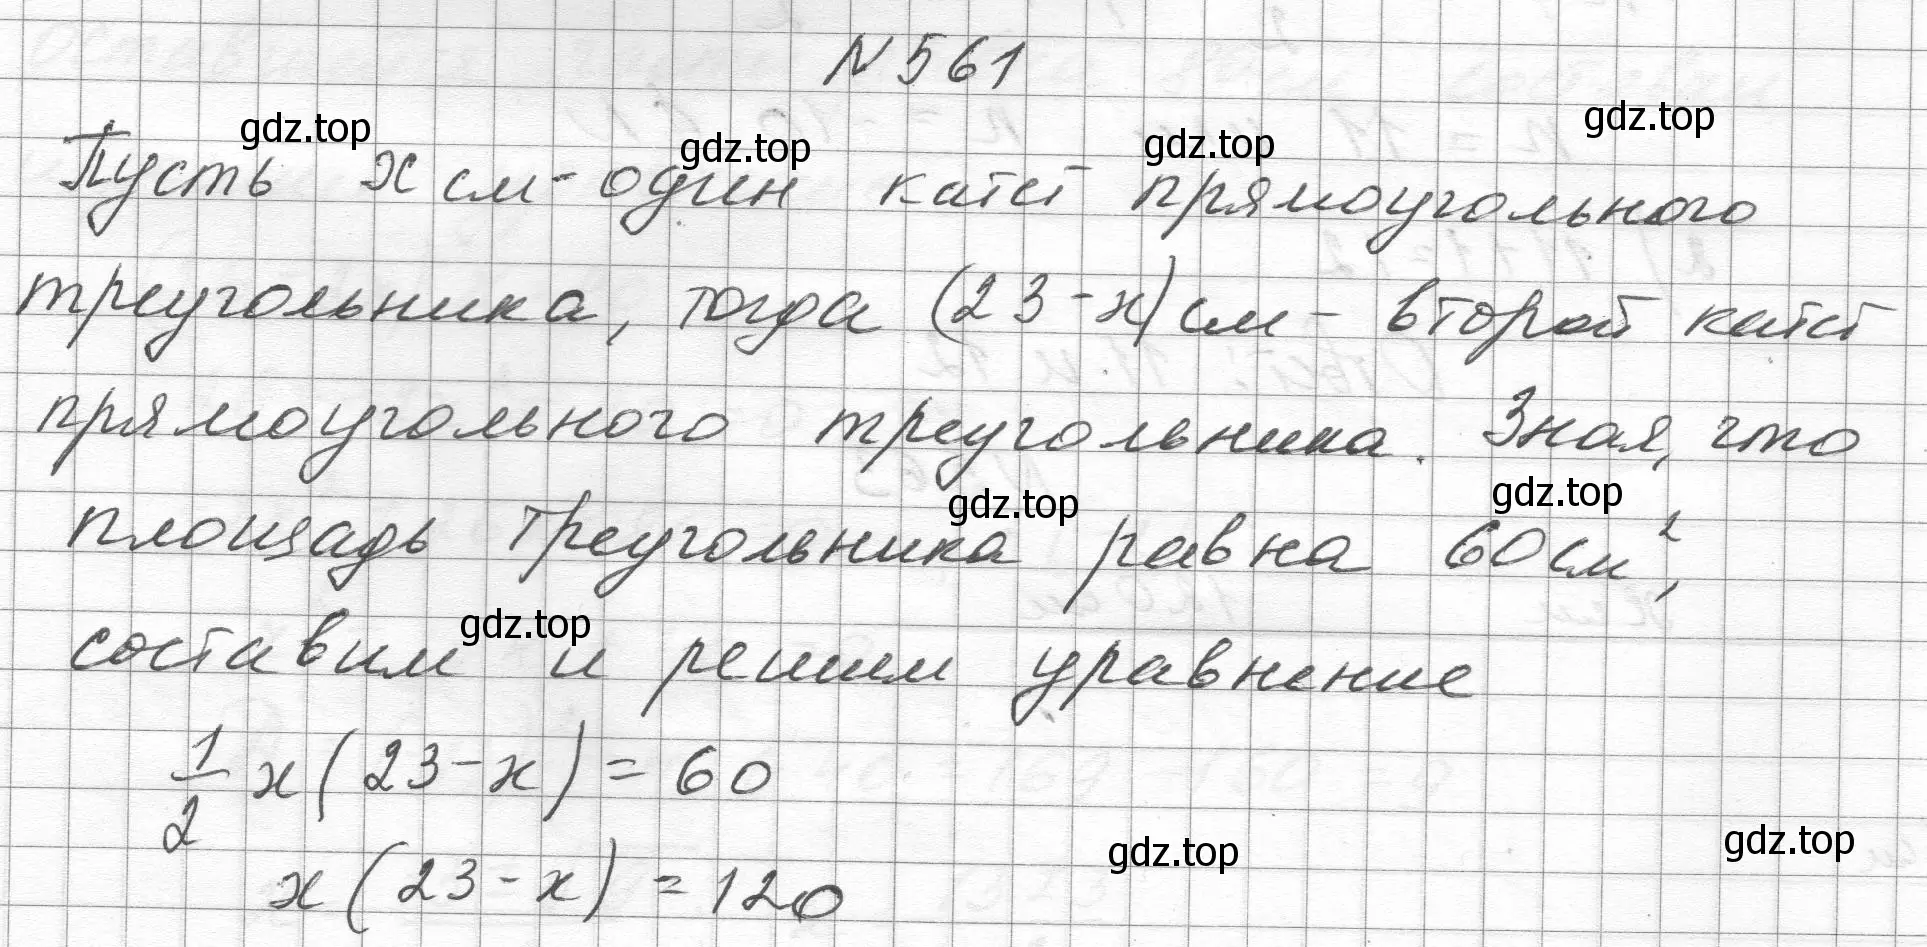 N 561
Пусть x см - один катет прямоугольного
треугольника, тогда (23 - x) см - второй катет
прямоугольного треугольника. Зная, что
площадь треугольника равна 60 см²,
составим и решим уравнение
1/2 x (23 - x) = 60
x (23 - x) = 120
gdz.top
gdz.top
gdz.top
gdz.top
gdz.top
gdz.top
gdz.top
gdz.top
gdz.top